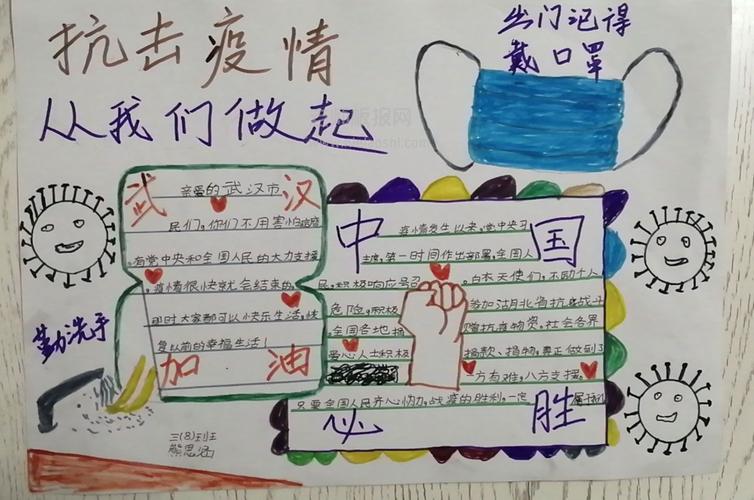 抗击疫情
从我们做起
出门记得
戴口罩
武汉
亲爱的武汉市
民们,你们不用害怕
有党中央和全国人民的大力支持
疫情很快就会结束的
那时大家都可以快乐生活,恢
复以前的幸福生活!
加油
勤洗手
三(8)班
熊思涵
中国
疫情发生以来,党中央习
主席,第一时间作出部署,全国人
民,积极响应号召
,白衣天使们,不顾个人
危险,积极
参加湖北省抗疫战斗
,全国各地捐
赠抗疫物资,社会各界
爱心人士积极
捐款、捐物,真正做到了
一方有难,八方支援。
只要全国人民齐心协力,战疫的胜利,一定属于
必胜